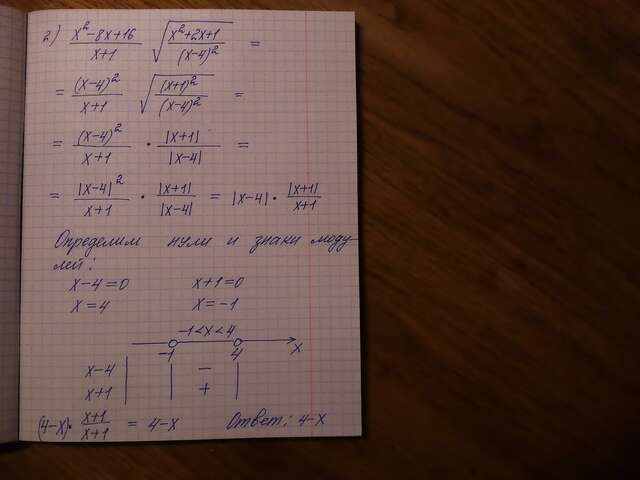 2) (x²-8x+16)/(x+1) √((x²+2x+1)/(x-4)²) =
= (x-4)²/(x+1) √((x+1)²/(x-4)²) =
= (x-4)²/(x+1) · |x+1|/|x-4| =
= |x-4|²/(x+1) · |x+1|/|x-4| = |x-4| · |x+1|/(x+1)
Определим нули и знаки моду-
лей:
x-4=0 x+1=0
x=4 x=-1
-1<x<4
-1 4 x
x-4 | | - |
x+1 | | + |
(4-x)· (x+1)/(x+1) = 4-x Ответ: 4-x